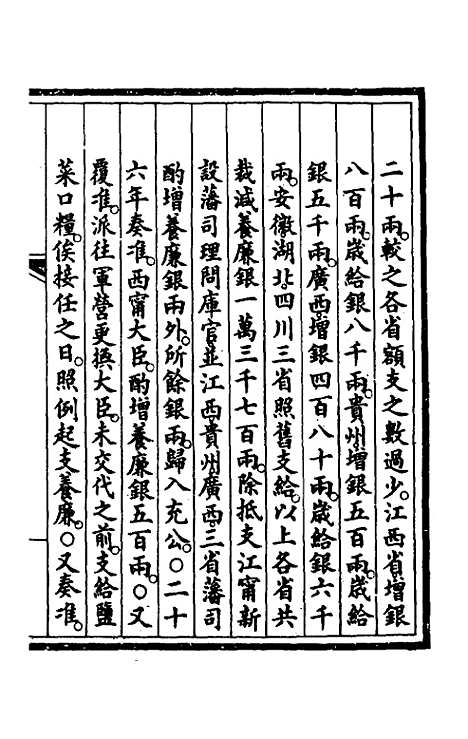 二十兩。較之各省額支之數過少。江西省增銀
八百兩。歲給銀八千兩。貴州增銀五百兩。歲給
銀五千兩。廣西增銀四百八十兩。歲給銀六千
兩。安徽湖北四川三省照舊支給。以上各省共
裁減養廉銀一萬三千七百兩。除抵支江甯新
設藩司理問庫官並江西貴州廣西三省藩司
酌增養廉銀兩外。所餘銀兩。歸入充公。○二十
六年奏准。西甯大臣。酌增養廉銀五百兩。○又
覆准。派往軍營更換大臣。未交代之前。支給鹽
菜口糧。俟接任之日。照例起支養廉。○又奏准。